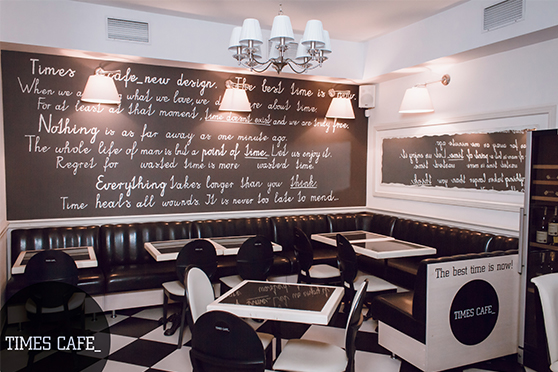 Times Cafe_new design. The best time is now.
When we are doing what we love, we don't care about time.
For at least at that moment, time doesn't exist and we are truly free.
Nothing is as far away as one minute ago.
The whole life of man is but a point of time. Let us enjoy it.
Regret for wasted time is more wasted time.
Everything takes longer than you think.
Time heals all wounds. It is never too late to mend...
The best time is now!
TIMES CAFE_
TIMES CAFE_
TIMES CAFE_